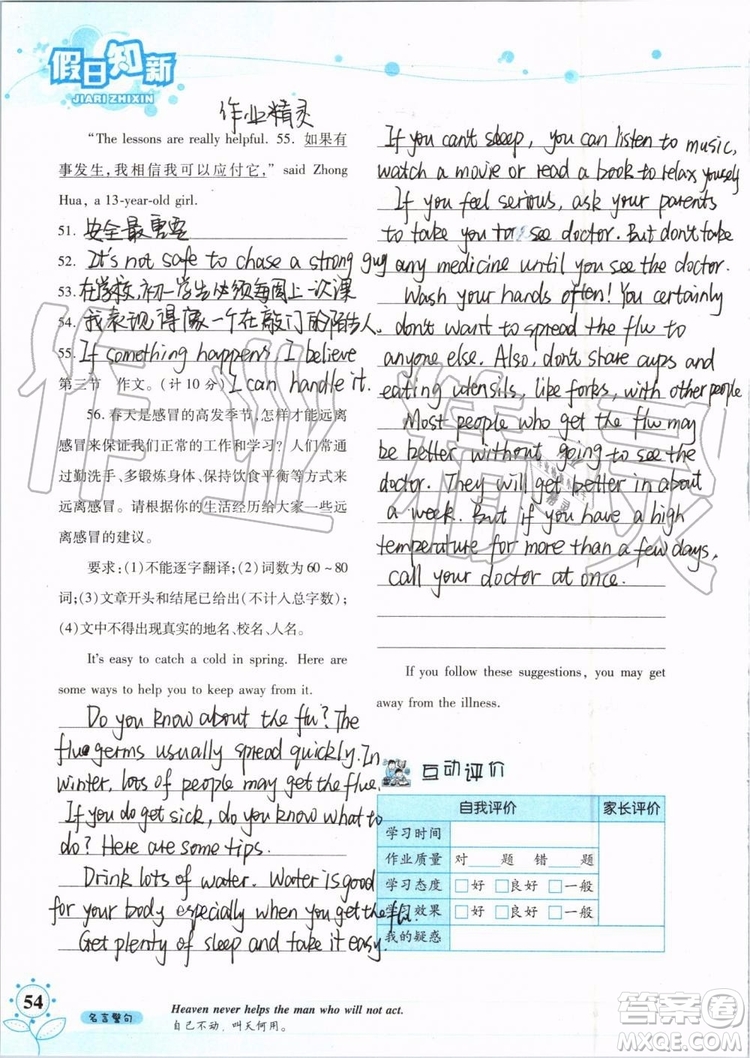 假日知新
JIARI ZHIXIN
作业精灵
"The lessons are really helpful. 55. 如果有
事发生,我相信我可以应付它," said Zhong
Hua, a 13-year-old girl.
51. 安全最重要
52. It's not safe to chase a strong guy
53. 在学校,初一学生必须每周上一次课
54. 我表现得像一个在敲门的陌生人.
55. If something happens, I believe
I can handle it.
第三节 作文。(计 10 分)
56. 春天是感冒的高发季节,怎样才能远离
感冒来保证我们正常的工作和学习?人们常通
过勤洗手、多锻炼身体、保持饮食平衡等方式来
远离感冒。请根据你的生活经历给大家一些远
离感冒的建议。
要求:(1)不能逐字翻译;(2)词数为 60~80
词;(3)文章开头和结尾已给出(不计入总字数);
(4)文中不得出现真实的地名、校名、人名。
It's easy to catch a cold in spring. Here are
some ways to help you to keep away from it.
Do you know about the flu? The
flue germs usually spread quickly. In
winter, lots of people may get the flue.
If you do get sick, do you know what to
do? Here are some tips.
Drink lots of water. Water is good
for your body especially when you get the flu.
Get plenty of sleep and take it easy.
If you can't sleep, you can listen to music,
watch a movie or read a book to relax youself
If you feel serious, ask your parents
to take you to see doctor. But don't take
any medicine until you see the doctor.
Wash your hands often! You certainly
don't want to spread the flu to
anyone else. Also, don't share cups and
eating utensils, like forks, with other people
Most people who get the flu may
be better without going to see the
doctor. They will get better in about
a week. But if you have a high
temperature for more than a few days,
call your doctor at once.
If you follow these suggestions, you may get
away from the illness.
互动评价
自我评价 家长评价
学习时间
作业质量 对____题 错____题
学习态度 □好 □良好 □一般
学习效果 □好 □良好 □一般
我的疑惑
54
名言警句
Heaven never helps the man who will not act.
自己不动,叫天何用。
作业精灵
答案圈
MXQE.COM